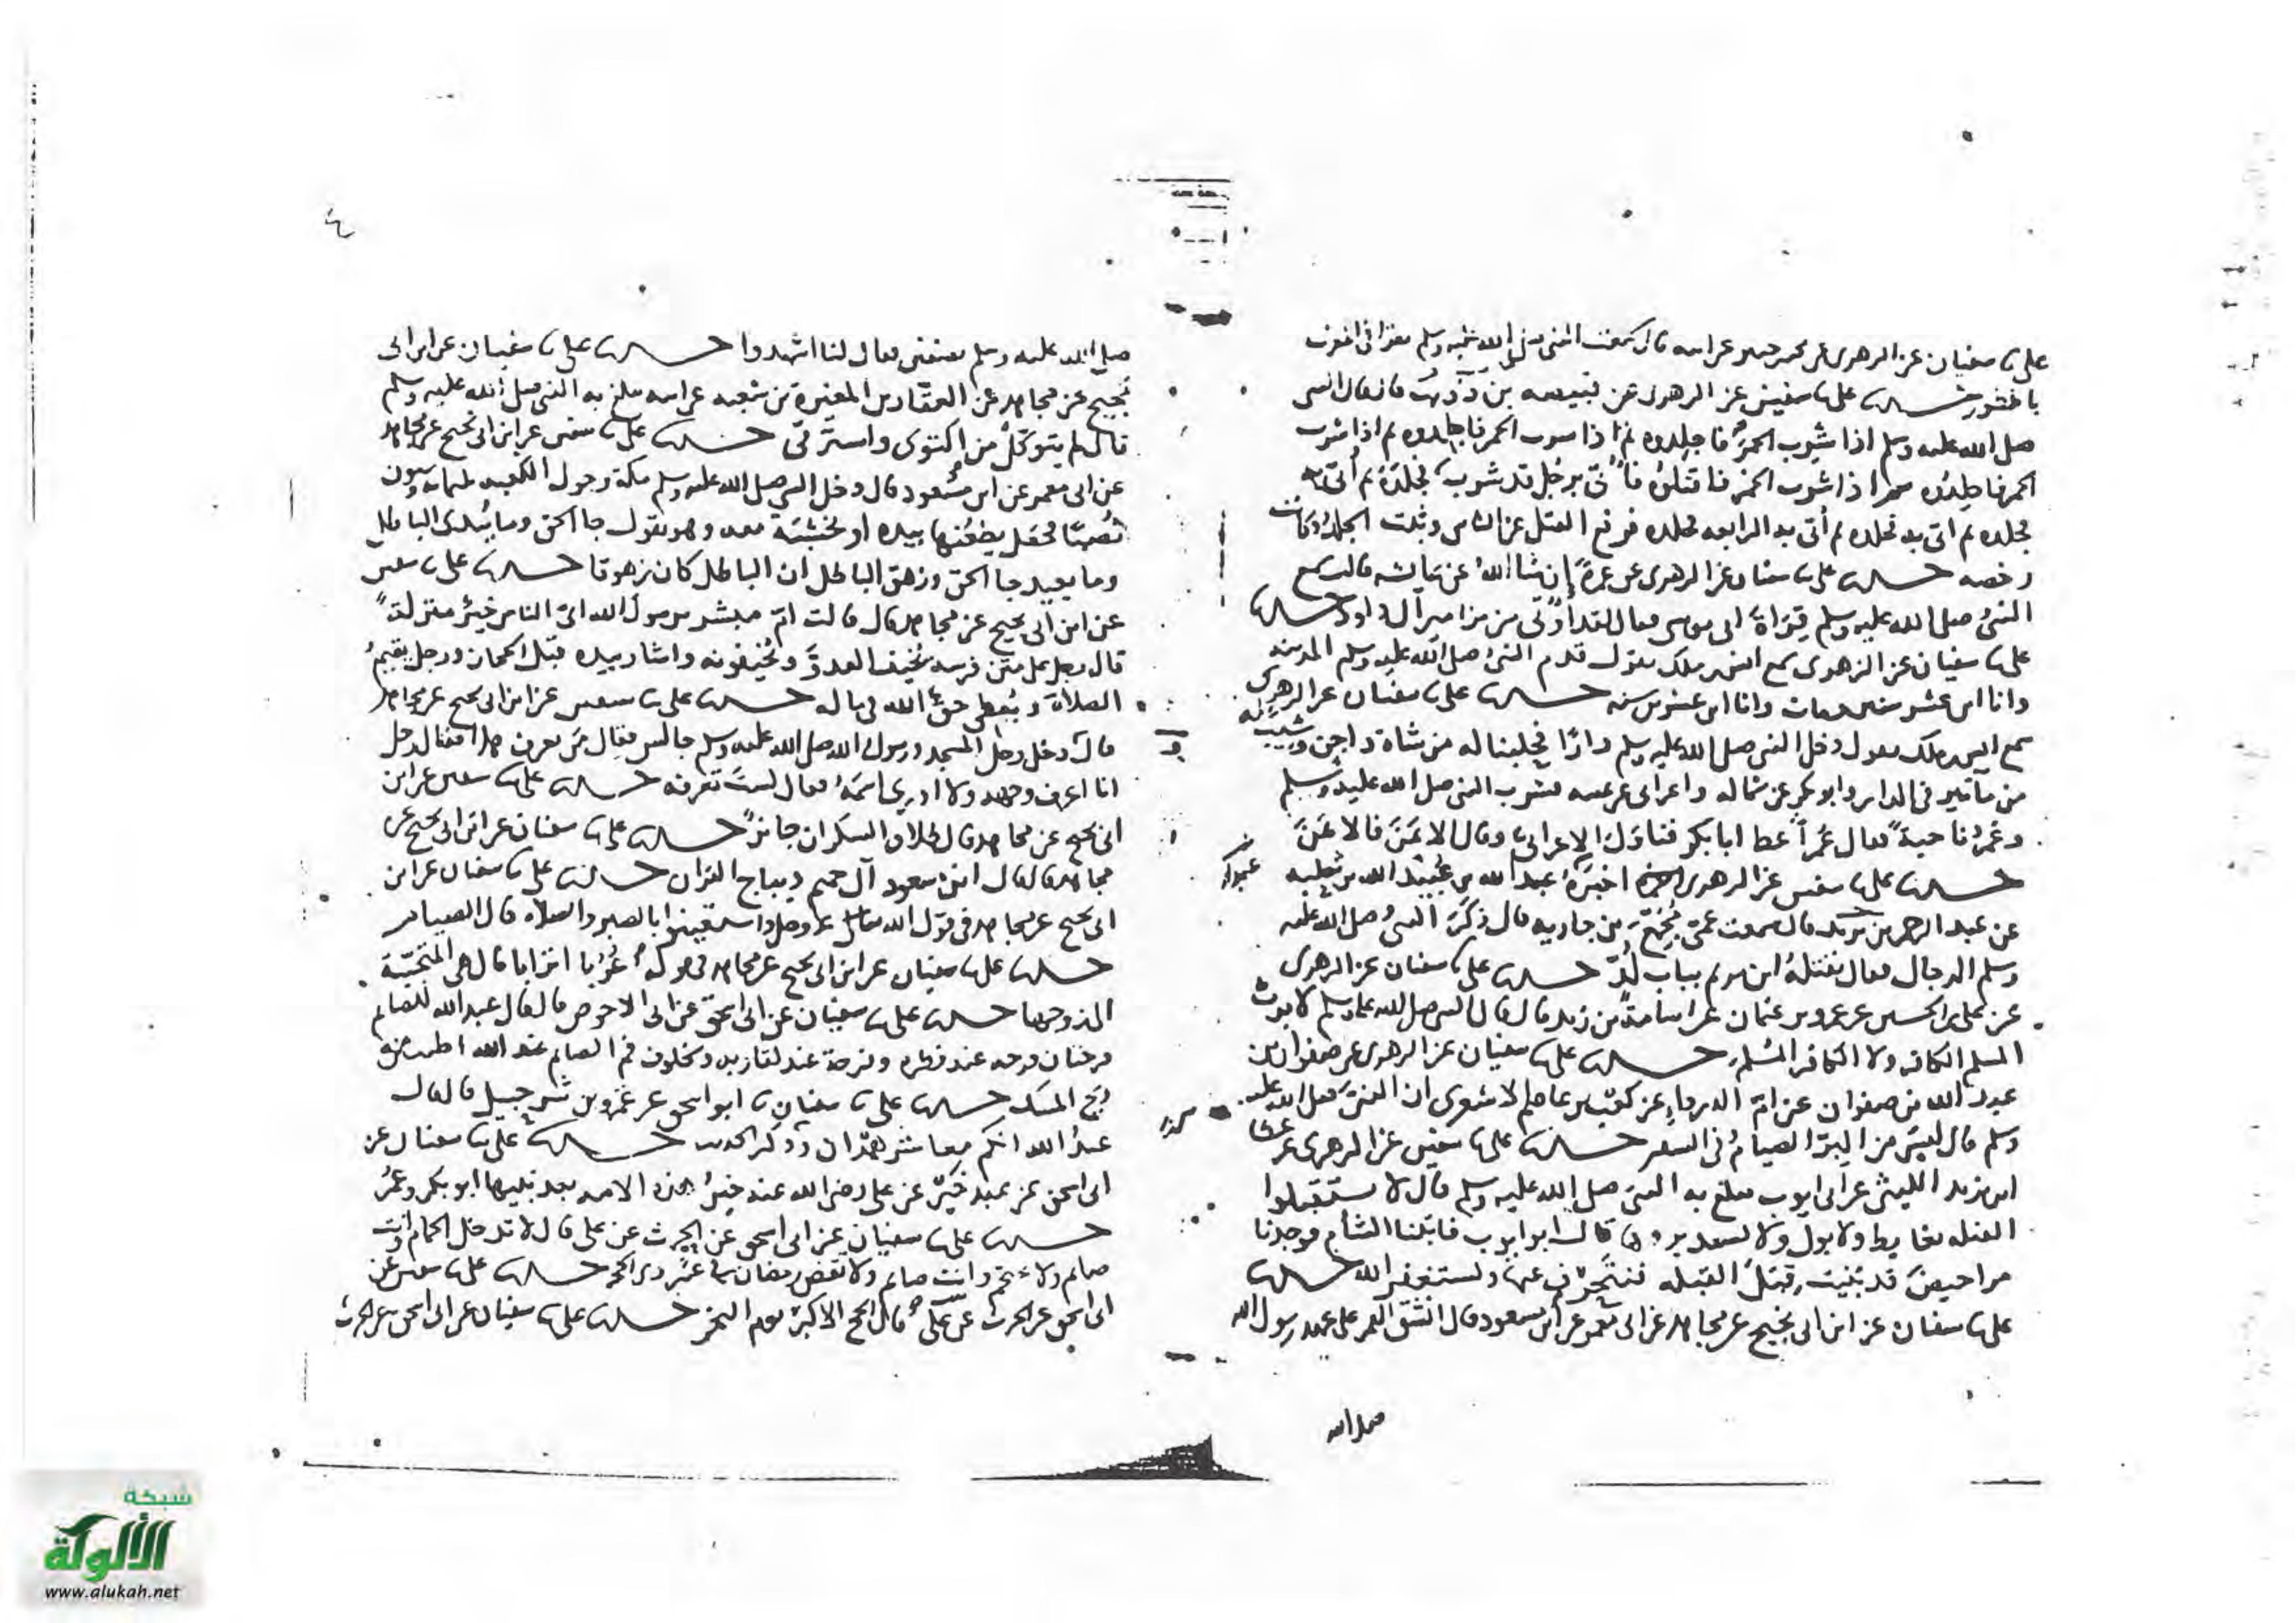 علي نا سفيان عن الزهري عن محمد بن جبير عن ابيه قال سمعت النبي صلى الله عليه وسلم يقرا في المغرب
بالطور حدثنا علي نا سفين عن الزهري عن قبيصه بن ذؤيب قال قال النبي
صلى الله عليه وسلم اذا شرب الخمر فاجلدوه ثم اذا شرب الخمر فاجلدوه ثم اذا شرب
الخمر فاجلدوه ثم اذا شرب الخمر فاقتلوه فأتي برجل قد شرب فجلده ثم أتي به
فجلده ثم اتي به فجلده ثم أتي به الرابعه فجلده فرفع القتل عن الناس وثبت الجلد وكانت
رخصه حدثنا علي نا سفيان عن الزهري عن عمرة إن شا الله عن عايشه قالت سمع
النبي صلى الله عليه وسلم قراة ابي موسى فقال لقد أوتي من مزامير آل داود حدثنا
علي نا سفيان عن الزهري سمع انس بن ملك يقول قدم النبي صلى الله عليه وسلم المدينه
وانا ابن عشر سنين ومات وانا ابن عشرين سنه حدثنا علي نا سفيان عن الزهري
سمع انس بن ملك يقول دخل النبي صلى الله عليه وسلم دارنا فحلبنا له من شاة داجن وشيب له
من ما بير في الدار وابو بكر عن شماله واعرابي عن يمينه فشرب النبي صلى الله عليه وسلم
وعمر ناحية فقال عمر أعط ابا بكر فناول الاعرابي وقال الايمن فالايمن
حدثنا علي نا سفين عن الزهري اخبره عبد الله بن عبيد الله بن ثعلبه
عن عبد الرحمن بن يزيد قال سمعت عمي مجمع بن جاريه قال ذكر النبي صلى الله عليه
وسلم الدجال فقال يقتله ابن مريم بباب لد حدثنا علي نا سفيان عن الزهري
عن علي بن الحسين عن عمرو بن عثمان عن اسامة بن زيد قال قال النبي صلى الله عليه وسلم لا يرث
المسلم الكافر ولا الكافر المسلم حدثنا علي نا سفيان عن الزهري عن صفوان بن
عبد الله بن صفوان عن ام الدرداء عن كعب بن عاصم الاشعري ان النبي صلى الله عليه
وسلم قال ليس من البر الصيام في السفر حدثنا علي نا سفين عن الزهري عن عطا
ابن يزيد الليثي عن ابي ايوب يبلغ به النبي صلى الله عليه وسلم قال لا تستقبلوا
القبله بغايط ولا بول ولا تستدبروها قال ابو ايوب فاتينا الشام فوجدنا
مراحيض قد بنيت قبل القبله فننحرف عنها ونستغفر الله حدثنا
علي نا سفيان عن ابن ابي نجيح عن مجاهد عن ابي معمر عن ابن مسعود قال انشق القمر على عهد رسول الله
صلى الله
صلى الله عليه وسلم بشقتين فقال لنا اشهدوا حدثنا علي نا سفيان عن ابن ابي
نجيح عن مجاهد عن العقار بن المغيرة بن شعبه عن ابيه يبلغ به النبي صلى الله عليه وسلم
قال لم يتوكل من اكتوى واسترقى حدثنا علي نا سفين عن ابن ابي نجيح عن مجاهد
عن ابي معمر عن ابن مسعود قال دخل النبي صلى الله عليه وسلم مكة وحول الكعبه ثلثمايه وستون
نصبا فجعل يطعنها بيده او بخشبة معه وهو يقول جا الحق وما يبدئ الباطل
وما يعيد جا الحق وزهق الباطل ان الباطل كان زهوقا حدثنا علي نا سفين
عن ابن ابي نجيح عن مجاهد قال قالت ام مبشر يرسول الله اي الناس خير منزلة
قال رجل على متن فرسه يخيف العدو ويخيفونه واشار بيده قبل الحجاز ورجل يقيم
الصلاة ويعطي حق الله في ماله حدثنا علي نا سفين عن ابن ابي نجيح عن مجاهد
قال دخل رجل المسجد ورسول الله صلى الله عليه وسلم جالس فقال من يعرف هذا فقال رجل
انا اعرف وجهه ولا ادري ما اسمه فقال ليست تعرفه حدثنا علي نا سفين عن ابن
ابي نجيح عن مجاهد قال طلاق السكران جائز حدثنا علي نا سفيان عن ابن ابي نجيح عن
مجاهد قال قال ابن مسعود آل حميم ديباج القران حدثنا علي نا سفيان عن ابن
ابي نجيح عن مجاهد في قول الله عز وجل واستعينوا بالصبر والصلاه قال الصيام
حدثنا علي نا سفيان عن ابن ابي نجيح عن مجاهد في قوله عربا اترابا قال هي المتحببة
الى زوجها حدثنا علي نا سفيان عن ابي اسحق عن ابي الاحوص قال قال عبد الله للصايم
فرحتان فرحه عند فطره وفرحة عند لقا ربه وخلوف فم الصايم عند الله اطيب من
ريح المسك حدثنا علي نا سفيان نا ابو اسحق عن عمرو بن شرحبيل قال قال
عبد الله انكم معاشر همدان وذكر الحديث حدثنا علي نا سفيان عن
ابي اسحق عن عبد خير عن علي رضي الله عنه خير هذه الامه بعد نبيها ابو بكر وعمر
حدثنا علي نا سفيان عن ابي اسحق عن الحرث عن علي قال لا تدخل الحمام وانت
صايم ولا تحتجم وانت صايم ولا تقض رمضان في عشر ذي الحجه حدثنا علي نا سفين عن
ابي اسحق عن الحرث عن علي قال الحج الاكبر يوم النحر حدثنا علي نا سفيان عن ابي اسحق عن الحرث
شبكة
الألوكة
www.alukah.net